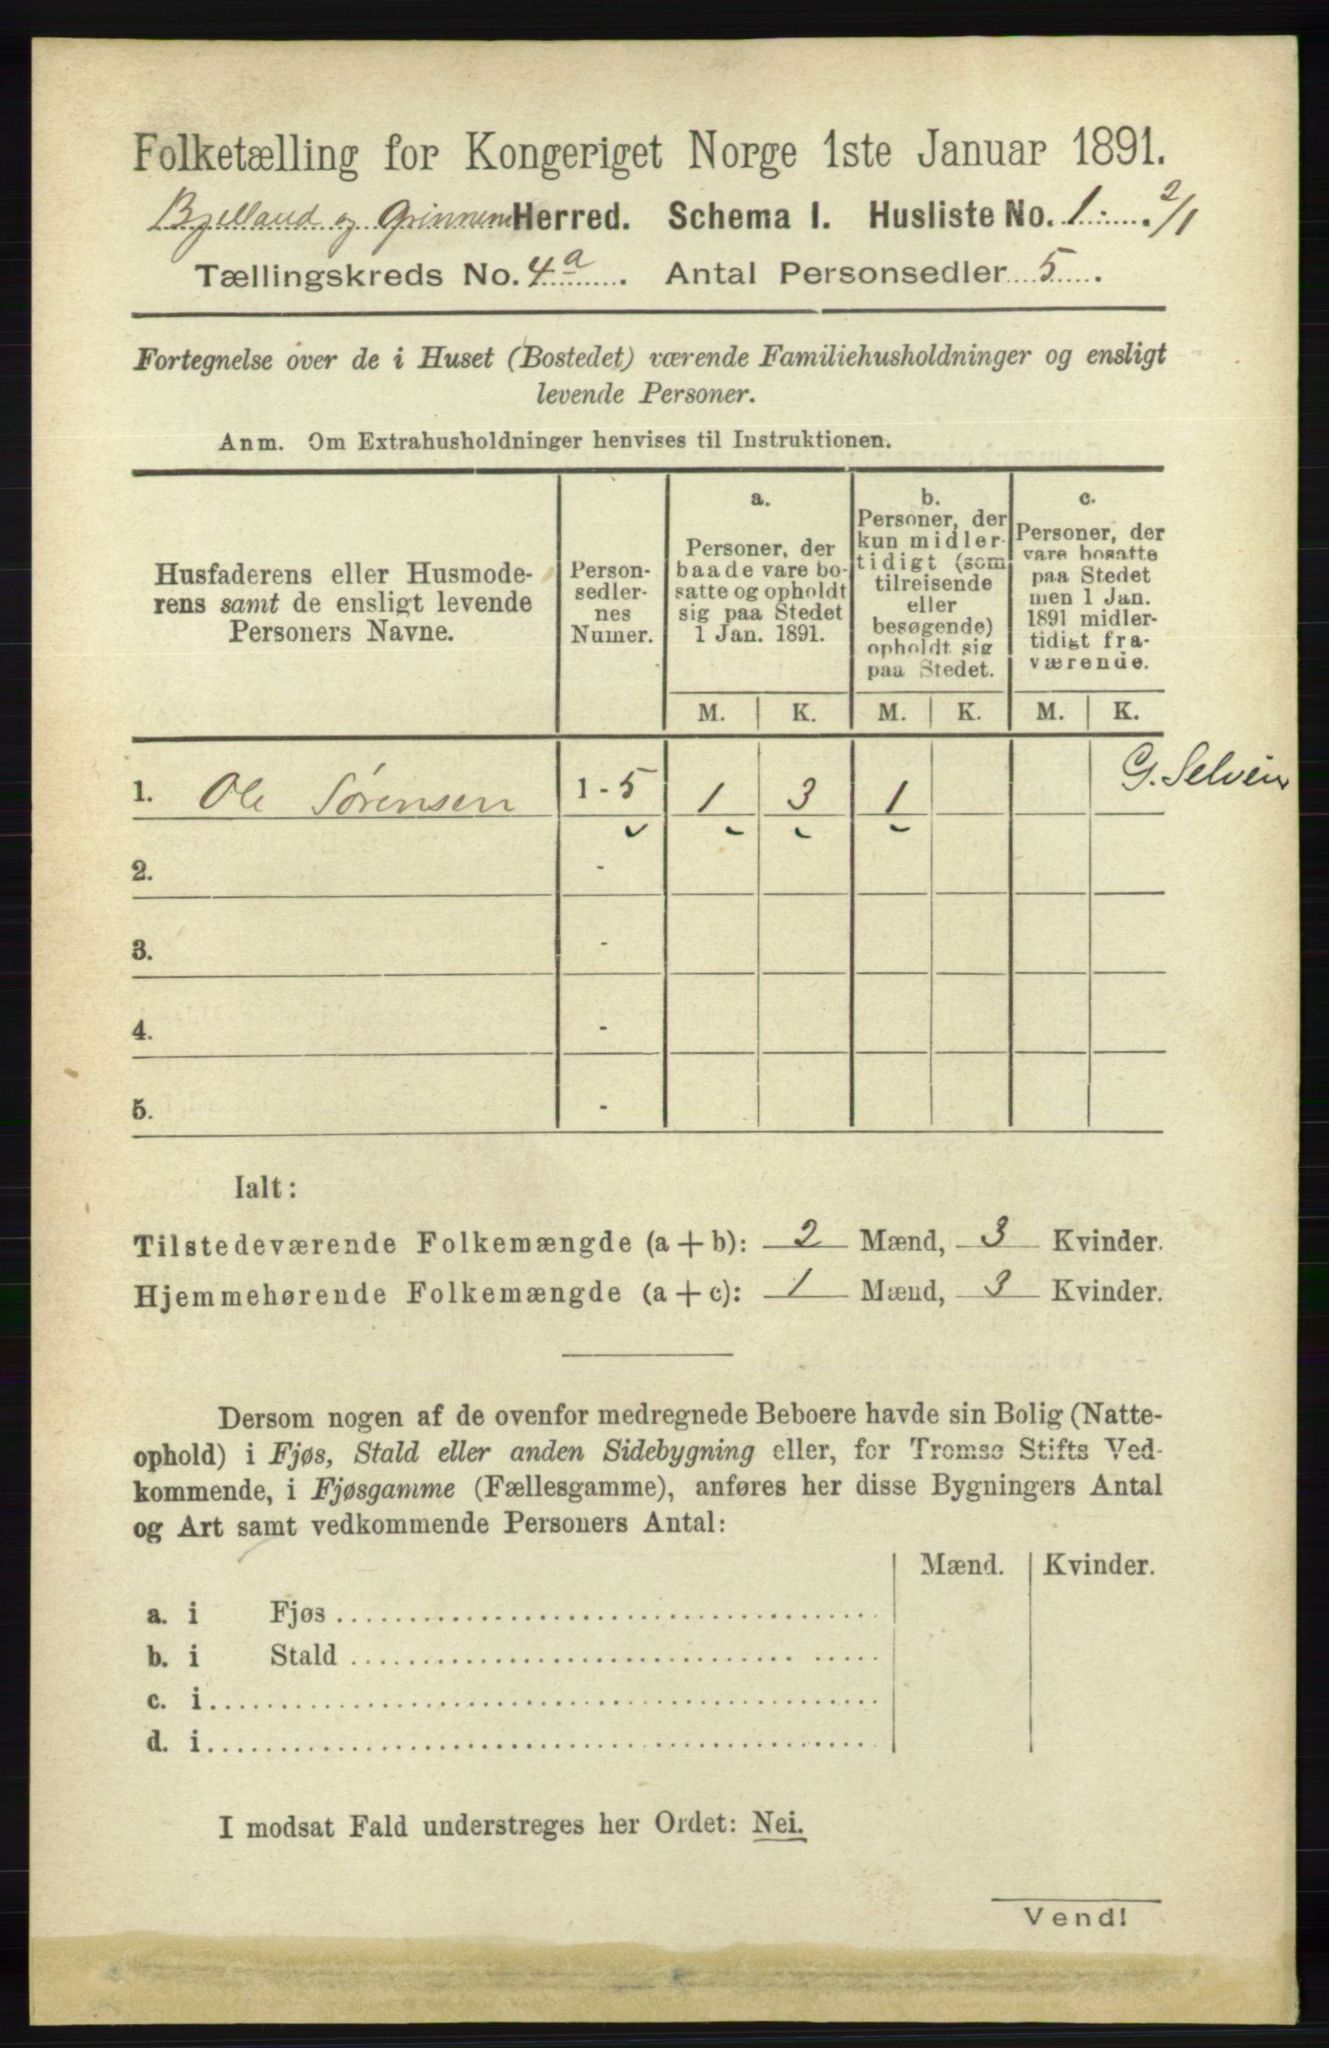 Folketælling for Kongeriget Norge 1ste Januar 1891.
Bjelland og Grinnum Herred. Schema I. Husliste No. 1. 2/1
Tællingskreds No. 4a. Antal Personsedler 5.
Fortegnelse over de i Huset (Bostedet) værende Familiehusholdninger og ensligt
levende Personer.
Anm. Om Extrahusholdninger henvises til Instruktionen.
Husfaderens eller Husmode-
rens samt de ensligt levende
Personers Navne.
Person-
sedler-
nes
Numer.
a.
Personer, der
baade vare bo-
satte og opholdt
sig paa Stedet
1 Jan. 1891.
b.
Personer, der
kun midler-
tidigt (som
tilreisende
eller
besøgende)
opholdt sig
paa Stedet.
c.
Personer, der
vare bosatte
paa Stedet
men 1 Jan.
1891 midler-
tidigt fra-
værende.
M. K. M. K. M. K.
1. Ole Sørensen 1 - 5 1 3 1 G. Selvein
2. -
3. -
4. -
5. -
Ialt:
Tilstedeværende Folkemængde (a + b): 2 Mænd, 3 Kvinder.
Hjemmehørende Folkemængde (a + c): 1 Mænd, 3 Kvinder.
Dersom nogen af de ovenfor medregnede Beboere havde sin Bolig (Natte-
ophold) i Fjøs, Stald eller anden Sidebygning eller, for Tromsø Stifts Ved-
kommende, i Fjøsgamme (Fællesgamme), anføres her disse Bygningers Antal
og Art samt vedkommende Personers Antal:
Mænd. Kvinder.
a. i Fjøs
b. i Stald
c. i
d. i
I modsat Fald understreges her Ordet: Nei.
Vend!